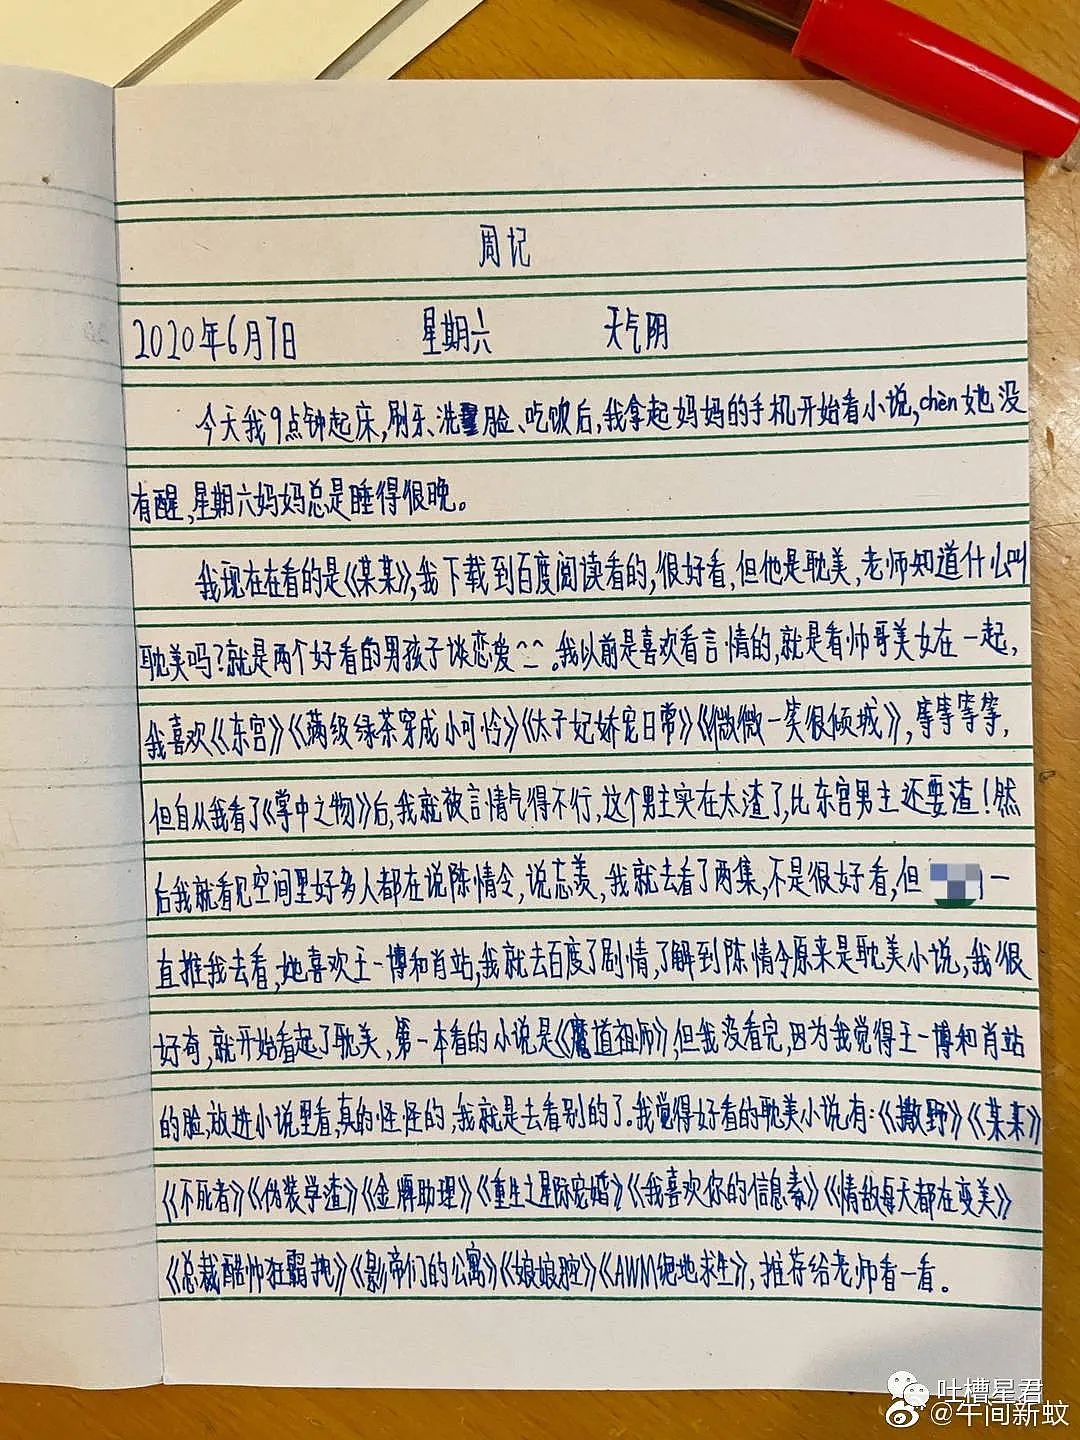 周记
2020年6月7日 星期六 天气阴
今天我9点钟起床,刷牙、洗脸、吃饭后,我拿起妈妈的手机开始看小说,chèn她没
有醒,星期六妈妈总是睡得很晚。
我现在在看的是《某某》,我下载到百度阅读看的,很好看,但他是耽美,老师知道什么叫
耽美吗?就是两个好看的男孩子谈恋爱^_^。我以前是喜欢看言情的,就是看帅哥美女在一起,
我喜欢《东宫》《满级绿茶穿成小可怜》《太子妃娇宠日常》《微微一笑很倾城》,等等等等,
但自从我看了《掌中之物》后,我就被言情气得不行,这个男主实在太渣了,比东宫男主还要渣!然
后我就看见空间里好多人都在说陈情令,说忘羡,我就去看了两集,不是很好看,但 一
直推我去看,她喜欢王一博和肖站,我就去百度了剧情,了解到陈情令原来是耽美小说,我很
好奇,就开始看起了耽美,第一本看的小说是《魔道祖师》,但我没看完,因为我觉得王一博和肖站
的脸,放进小说里看,真的怪怪的,我就是去看别的了。我觉得好看的耽美小说有:《撒野》《某某》
《不死者》《伪装学渣》《金牌助理》《重生之星际宠婚》《我喜欢你的信息素》《情敌每天都在变美》
《总裁酷帅狂霸拽》《影帝们的公寓》《娘娘腔》《AWM绝地求生》,推荐给老师看一看。
吐槽星君
@午间新蚊